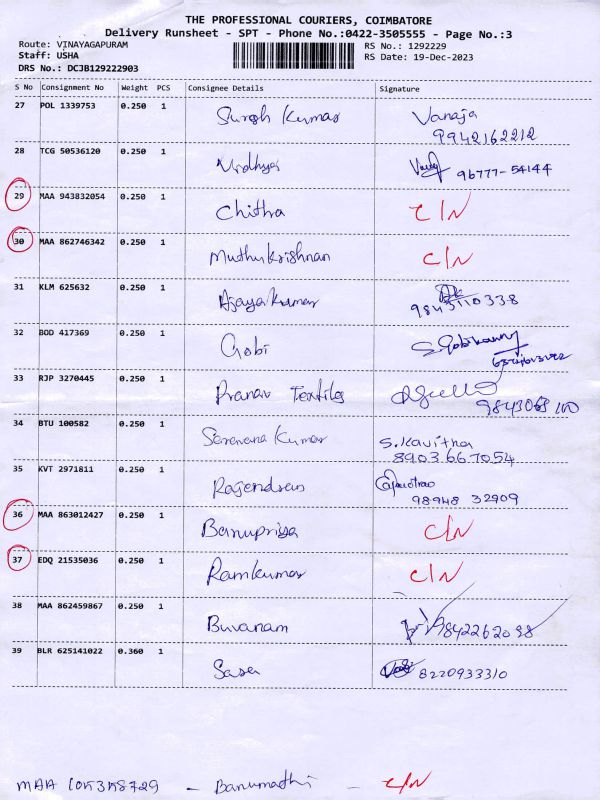 THE PROFESSIONAL COURIERS, COIMBATORE
Delivery Runsheet - SPT - Phone No.:0422-3505555 - Page No.:3
Route: VINAYAGAPURAM RS No.: 1292229
Staff: USHA RS Date: 19-Dec-2023
DRS No.: DCJB129222903
S No Consignment No Weight PCS Consignee Details Signature
27 POL 1339753 0.250 1 Suresh Kumar Vanaja
9942162212
28 TCG 50536120 0.250 1 Vidhya 96777-54144
29 MAA 943832054 0.250 1 Chithra C/N
30 MAA 862746342 0.250 1 Muthukrishnan C/N
31 KLM 625632 0.250 1 Ajayakumar
9843110338
32 BOD 417369 0.250 1 Gobi
33 RJP 3270445 0.250 1 Pranav Textiles
34 BTU 100582 0.250 1 Saravana Kumar S.Kavitha
8903667054
35 KVT 2971811 0.250 1 Rajendran
98948 32909
36 MAA 863012427 0.250 1 Banupriya C/N
37 EDQ 21535036 0.250 1 Ramkumar C/N
38 MAA 862459867 0.250 1 Buvanam 9842262098
39 BLR 625141022 0.360 1 Sasa 8220933310
MAA - Banumathi - C/N